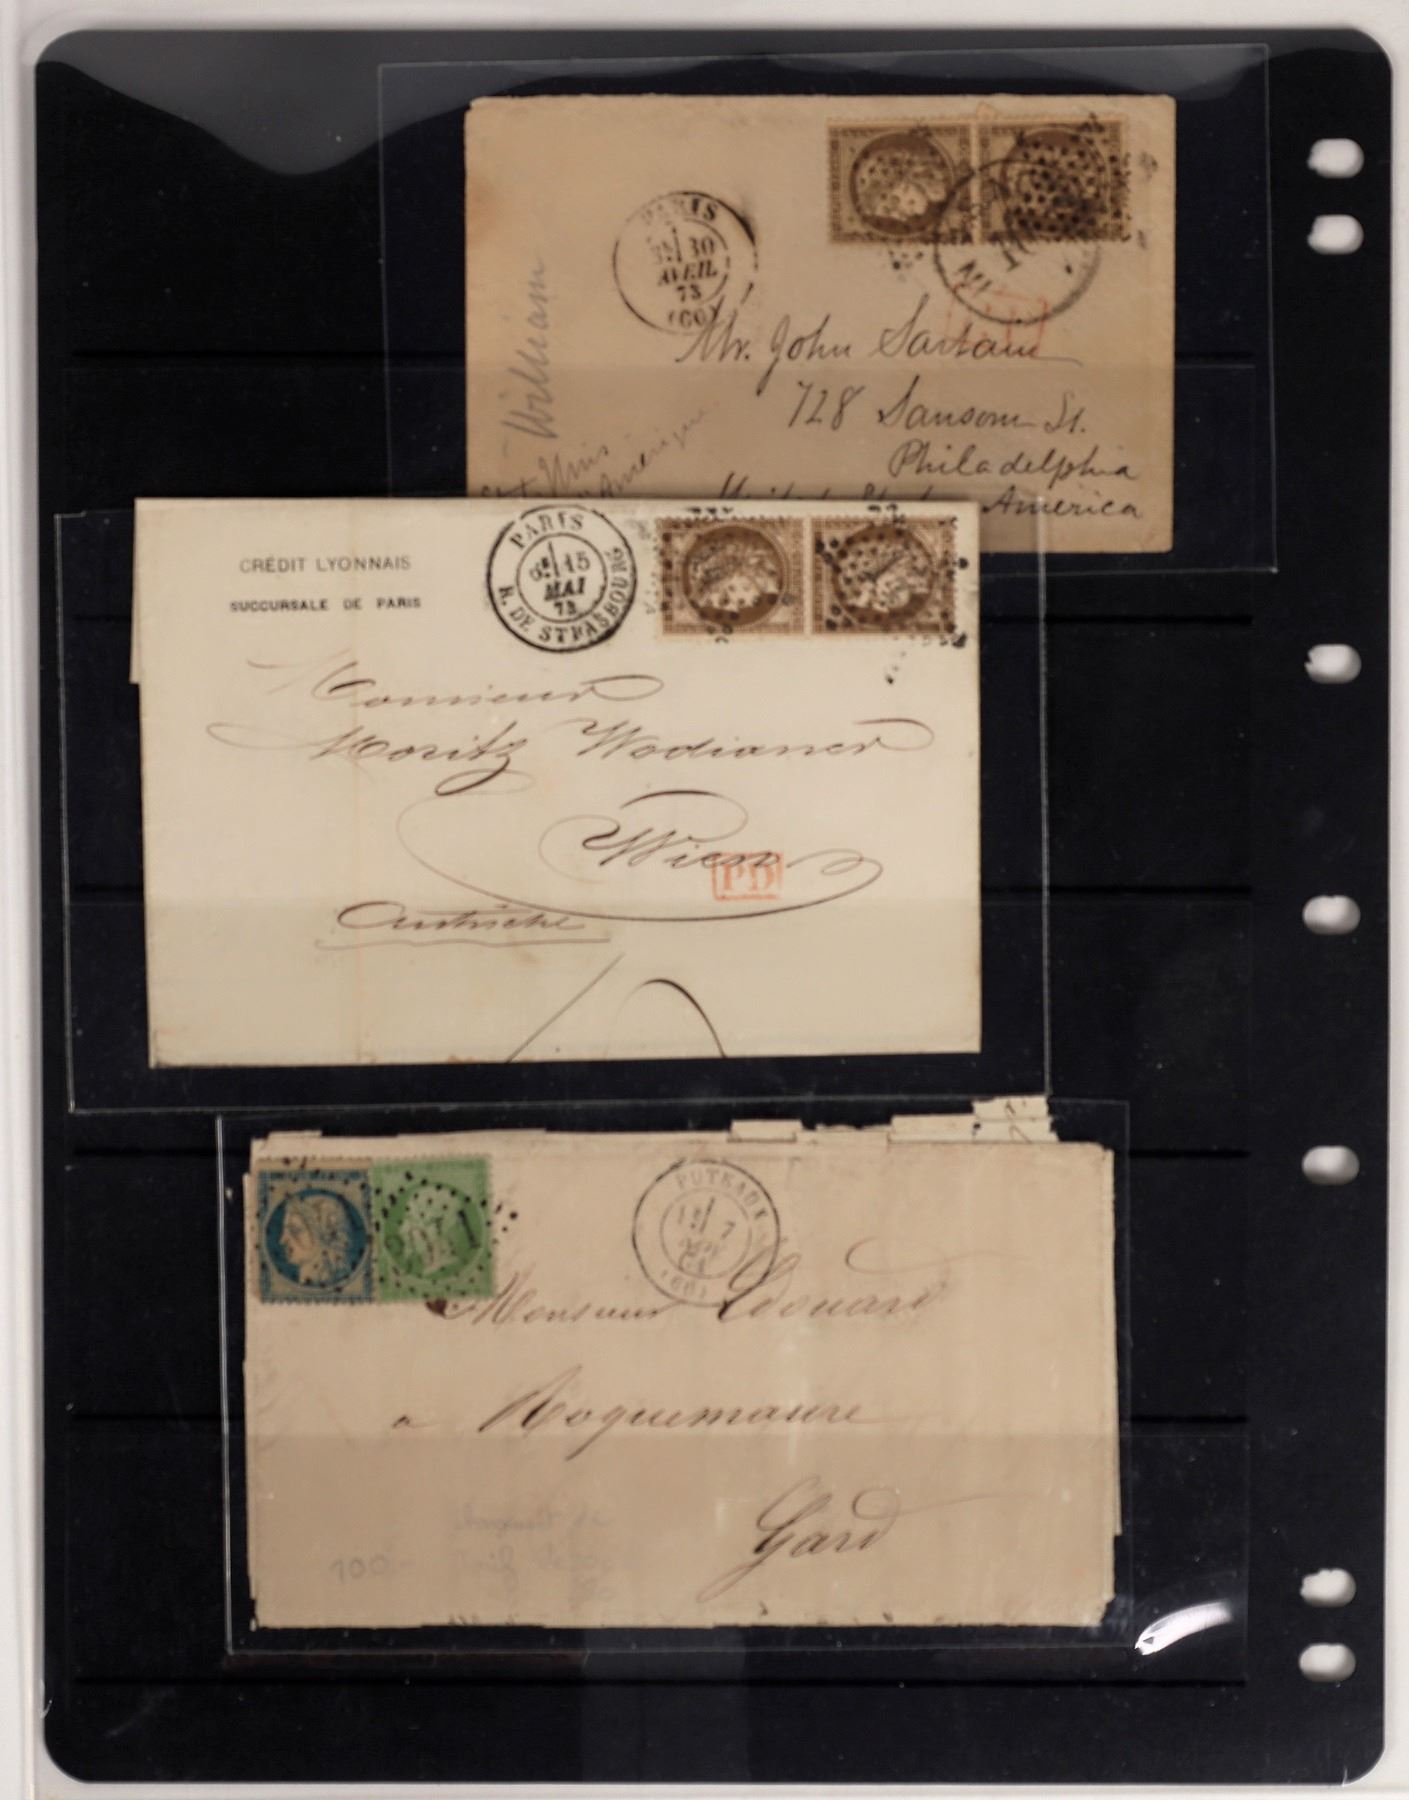 PARIS
30
AVRIL
73
(60)
William
Mr. John Sartain
728 Sansom St.
Philadelphia
America
CRÉDIT LYONNAIS
SUCCURSALE DE PARIS
PARIS
15
MAI
73
R. DE STRASBOURG
Monsieur
Moritz Wodianer
Wien
PD
Autriche
PUTEAUX
7
(60)
Monsieur Edouard
a Roquemaure
Gard
100.-